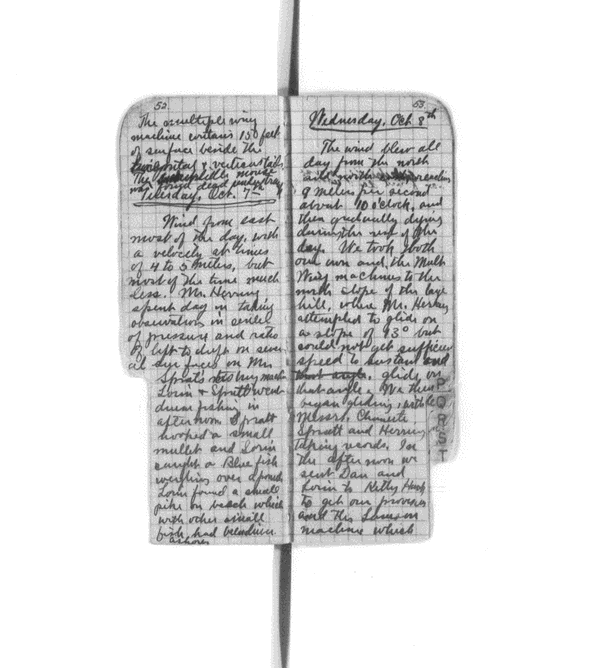 52
The multiple wing
machine contains 150 feet
of surface beside the
horizontal & vertical tails.
The mouse
was found dead under tray
Tuesday, Oct. 7—
Wind from east
most of the day, with
a velocity at times
of 4 to 5 meters, but
most of the time much
less. Mr. Herring
spent day in taking
observations in
of pressure and ratio
of lift to drift on
surfaces on Mr.
Spratt's machine
Lorin & Spratt went
drum fishing in
afternoon Spratt
hooked a small
mullet and Lorin
caught a Blue fish
weighing over a pound
Lorin found a small
pike on beach which
with other small
fish had been
ashore
53
Wednesday, Oct. 8th
The wind blew all
day from the north
reaching
9 meters per second
about 10 o'clock, and
then gradually dying
during the rest of the
day. We took both
our own and the Mult
Wing machines to the
north slope of the large
hill, where Mr. Herring
attempted to glide on
a slope of 13° but
could not get sufficient
speed to sustain
glide on
that angle. We then
began gliding, with
Messrs. Chanute
Spratt and Herring
taking records. In
the afternoon we
sent Dan and
Lorin to Kitty Hawk
to get our provisions
and the Lamson
machine which
P
Q
R
S
T